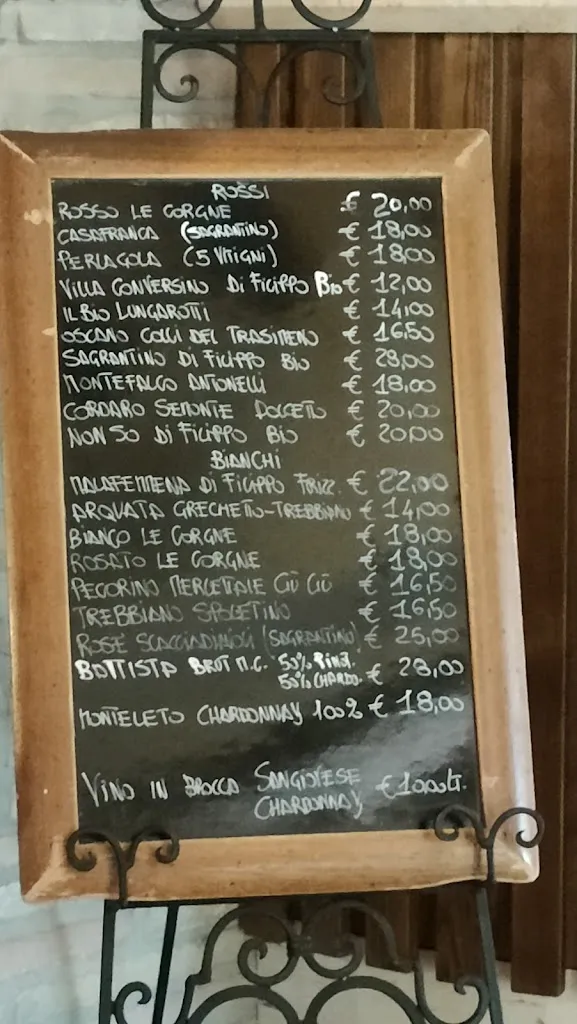 ROSSI
ROSSO LE CORGNE € 20,00
CASAFRANCA (SAGRANTINO) € 18,00
PERLAGOLA (5 VITIGNI) € 18,00
VILLA CONVERSINO Di FiLiPPO Bio € 12,00
IL Bio LUNGAROTTI € 14,00
OSCANO COLLI DEL TRASIMENO € 16,50
SAGRANTINO Di FiLiPPO Bio € 28,00
MONTEFALCO ANTONELLI € 18,00
CORDARO SEMONTE DOLCETO € 20,00
NON SO Di FiLiPPO Bio € 20,00
BIANCHI
MALAFEMMENA Di FiLiPPO FRIZZ. € 22,00
ARQUATA GRECHETTO-TREBBIANO € 14,00
BIANCO LE CORGNE € 18,00
ROSATO LE CORGNE € 18,00
PECORINO MERCETALE CIÙ CIÙ € 16,50
TREBBIANO SPOLETINO € 16,50
ROSÈ SCACCIADIAVOLI (SAGRANTINO) € 25,00
BATTISTA BRUT M.C. 50% PINOT. € 28,00
50% CHARDO.
MONTELETO CHARDONNAY 100% € 18,00
VINO IN BROCCA SANGIOVESE € 10,00 LT.
CHARDONNAY